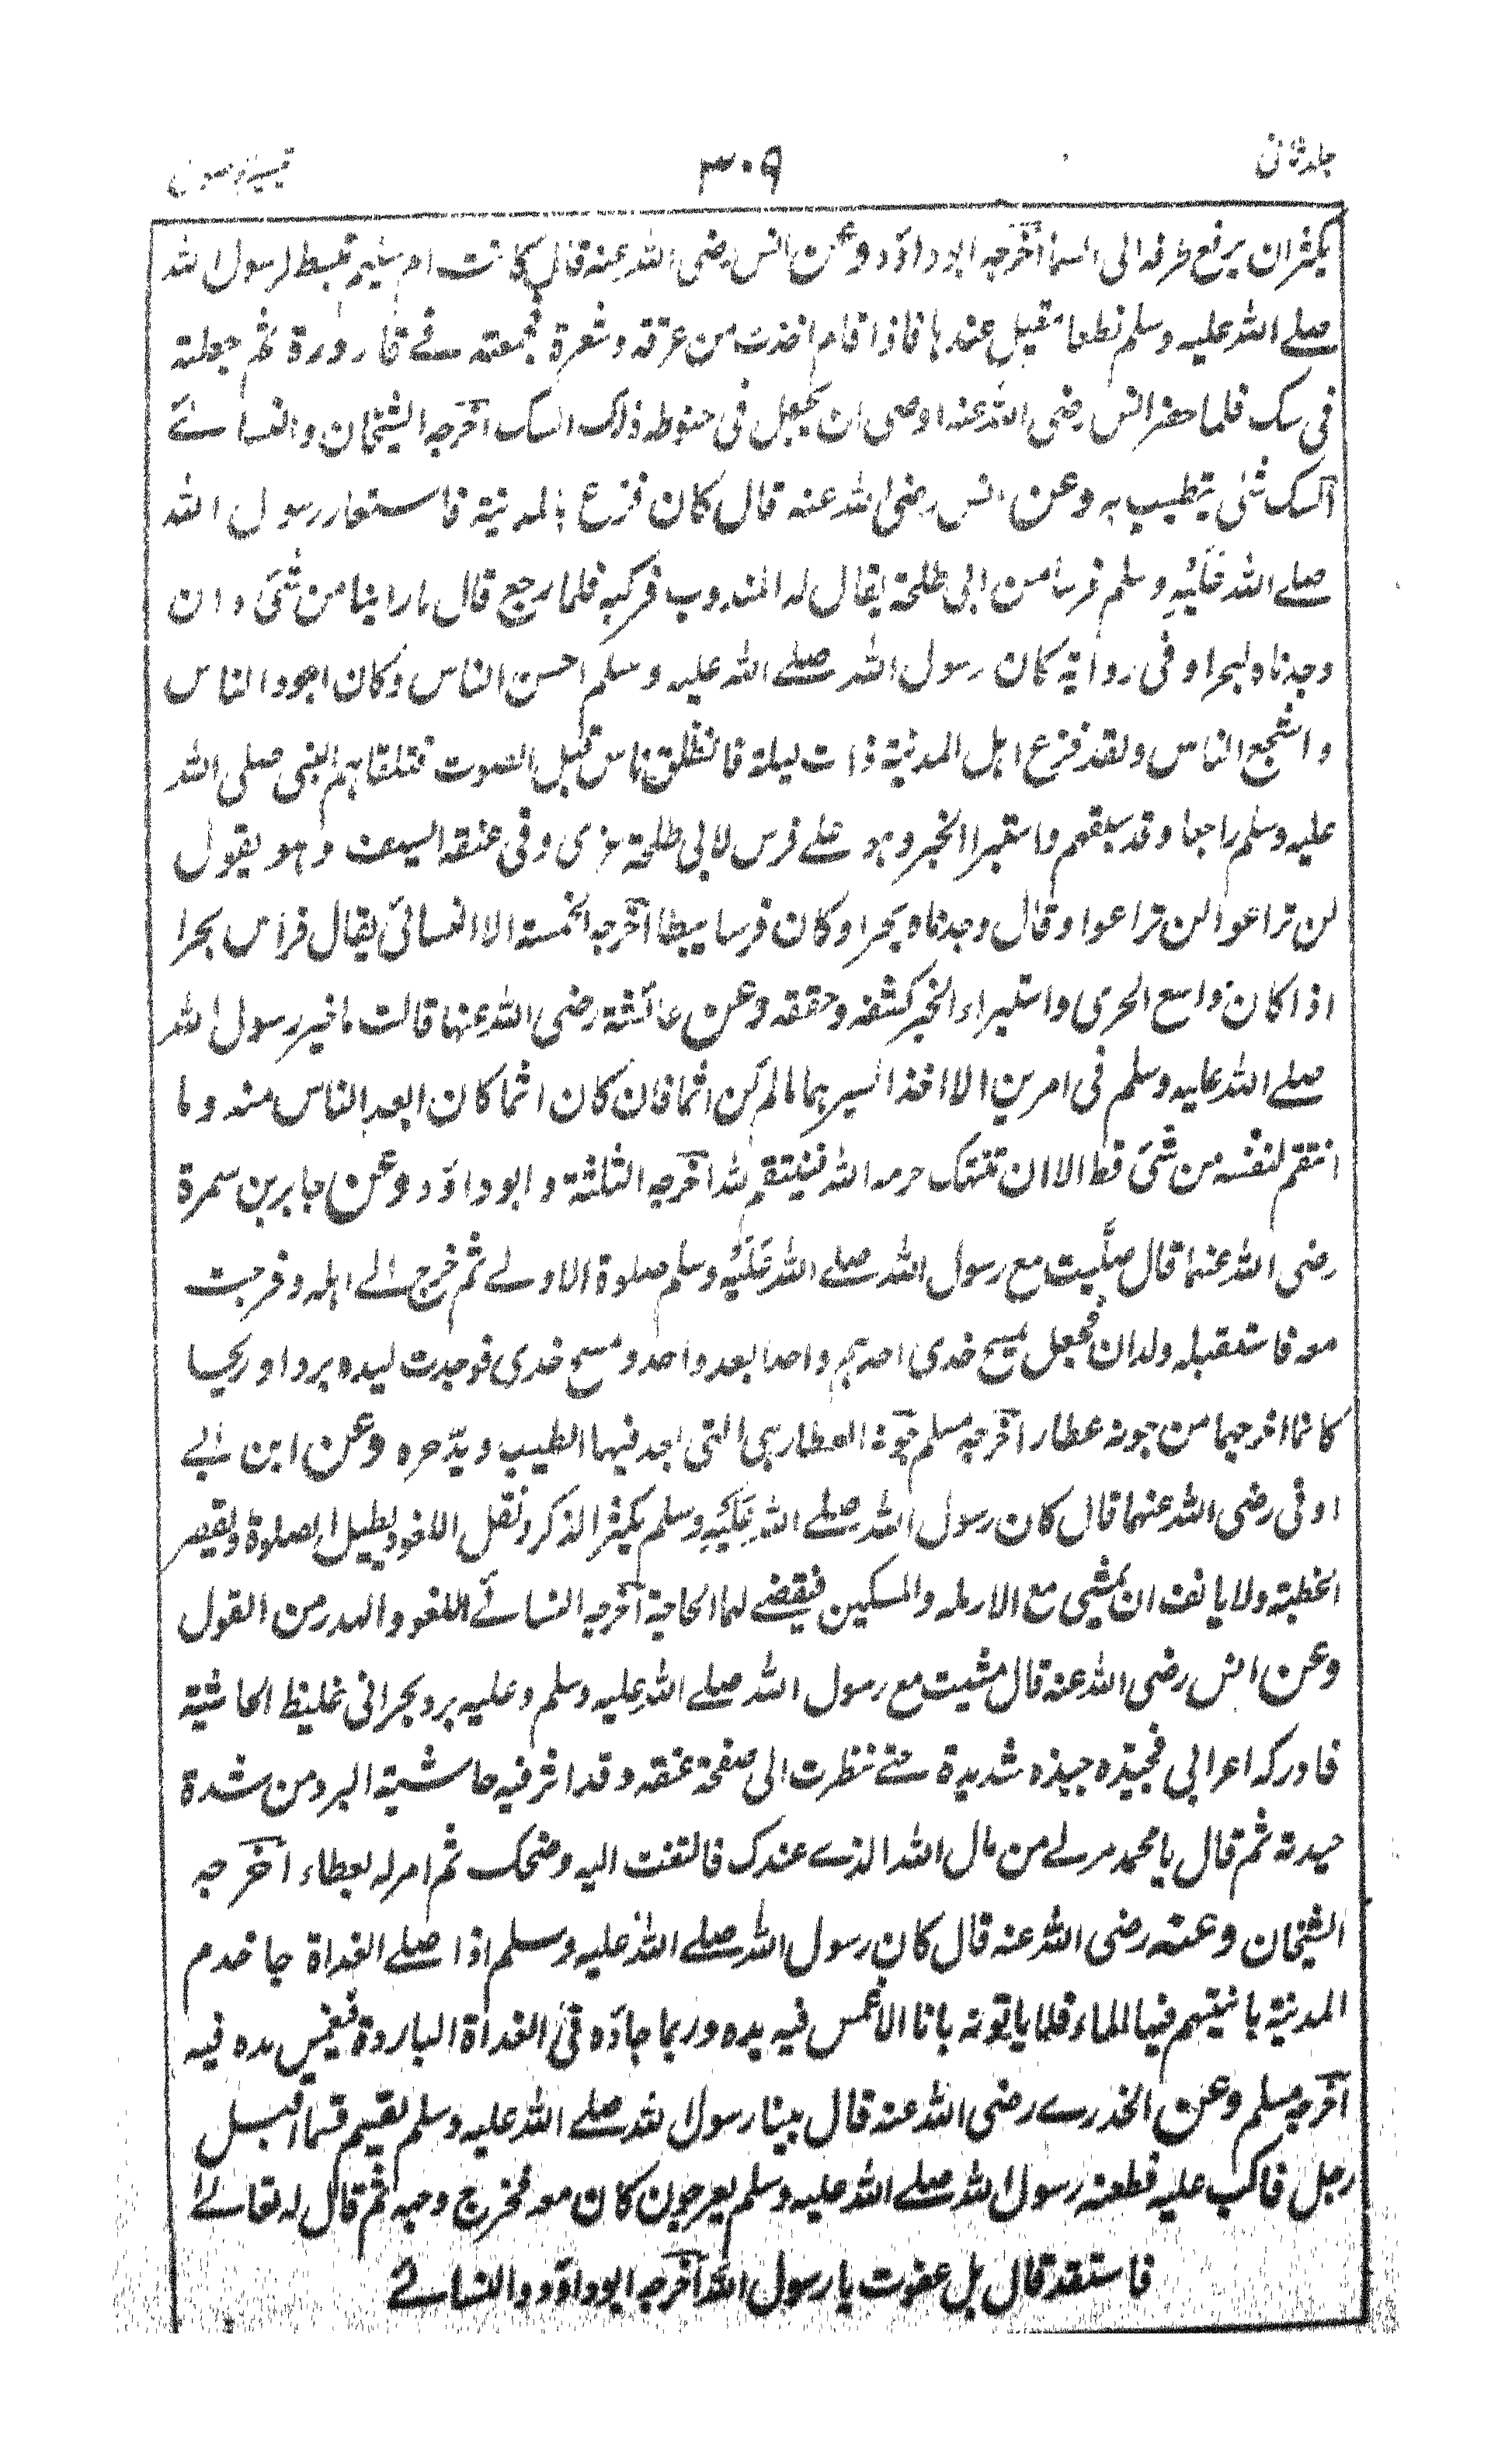 جلد ثانی ۳۰۹ تیسیر الوصول
یکثر ان یرفع طرفہ الی السما اخرجہ ابو داؤد وعن انس رضی اللہ عنہ قال کانت ام سلیم تبسط لرسول اللہ
صلے اللہ علیہ وسلم نطعا مقیل عندہا فاذا قام اخذت من عرقہ وشعرۃ فجمعتہ فے قارورۃ ثم جعلتہ
فی سک فلما حضر انس رضی اللہ عنہ اوصی ان یجعل فی حنوطہ ذلک السک اخرجہ الشیخان والنسائے
السک شئی یتطیب بہ وعن انس رضی اللہ عنہ قال کان فزع بالمدینۃ فاستعار رسول اللہ
صلے اللہ عَلَیْہِ وسلم فرسا من ابی طلحۃ یقال لہ المندوب فرکبہ فلما رجع قال ما راینا من شئی وان
وجدناہ لبحرا وفی روایۃ کان رسول اللہ صلے اللہ علیہ وسلم احسن الناس وکان اجود الناس
واشجع الناس ولقد فزع اہل المدینۃ ذات لیلۃ فانطلق ناس قبل الصوت فتلقاہم النبی صلی اللہ
علیہ وسلم راجعا وقد سبقہم واستبرا الخبر وہو علے فرس لابی طلحۃ عری وفی عنقہ السیف وہو یقول
لن تراعوا لن تراعوا وقال وجدناہ بحرا وکان فرسا یبطا اخرجہ الخمسۃ الا النسائی یقال فراس بحرا
اذا کان واسع الجری واستبراء الخبر کشفہ وحققہ وعن عائشۃ رضی اللہ عنہا قالت ما خیر رسول اللہ
صلے اللہ علیہ وسلم فی امرین الا اخذ ایسرہما ما لم یکن اثما فان کان اثما کان ابعد الناس منہ وما
انتقم لنفسہ من شئی قط الا ان تنتہک حرمہ اللہ فینتقم للہ اخرجہ الثلثۃ وابو داؤد وعن جابر بن سمرۃ
رضی اللہ عنہما قال صلّیت مع رسول اللہ صلے اللہ عَلَیْہِ وسلم صلوۃ الاولے ثم خرج الے اہلہ وخرجت
معہ فاستقبلہ ولدان فجعل یمسح خدی احدہم واحدا بعد واحد ومسح خدی فوجدت لیدہ بردا وریحا
کانما اخرجہا من جونہ عطار اخرجہ مسلم جونۃ العطار ہی التی اجد فیہا الطیب ویدّخرہ وعن ابن ابے
اوفی رضی اللہ عنہما قال کان رسول اللہ صلے اللہ عَلَیْہِ وسلم یکثر الذکر ونقل اللغو ویطیل الصلوۃ ویقصر
الخطبۃ ولا یانف ان یمشی مع الارملہ والمسکین فیقضے لہما الحاجۃ اخرجہ النسائے اللغو والہدر من القول
وعن انس رضی اللہ عنہ قال مشیت مع رسول اللہ صلے اللہ علیہ وسلم وعلیہ برد نجرانی غلیظ الحاشیۃ
فادرکہ اعرابی فجبذہ جبذہ شدیدۃ حتے نظرت الی صفحۃ عنقہ وقد اثر فیہ حاشیۃ البرد من شدۃ
جبذتہ ثم قال یا محمد مر لے من مال اللہ الذے عندک فالتفت الیہ وضحک ثم امر لہ بعطاء اخرجہ
الشیخان وعنہ رضی اللہ عنہ قال کان رسول اللہ صلے اللہ علیہ وسلم اذا صلے الغداۃ جا خدم
المدینۃ بانیتہم فیہا الماء فلما یاتونہ بانا الا غمس فیہ یدہ وربما جاؤہ فی الغداۃ الباردۃ فیغمس یدہ فیہ
اخرجہ مسلم وعن الخدرے رضی اللہ عنہ قال بینا رسول اللہ صلے اللہ علیہ وسلم یقیم قسما اقبل
رجل فاکب علیہ فطعنہ رسول اللہ صلے اللہ علیہ وسلم بعرجون کان معہ فخرج وجہہ ثم قال لہ تعالے
فاستقد قال بل عفوت یا رسول اللہ اخرجہ ابو داؤد والنسائے